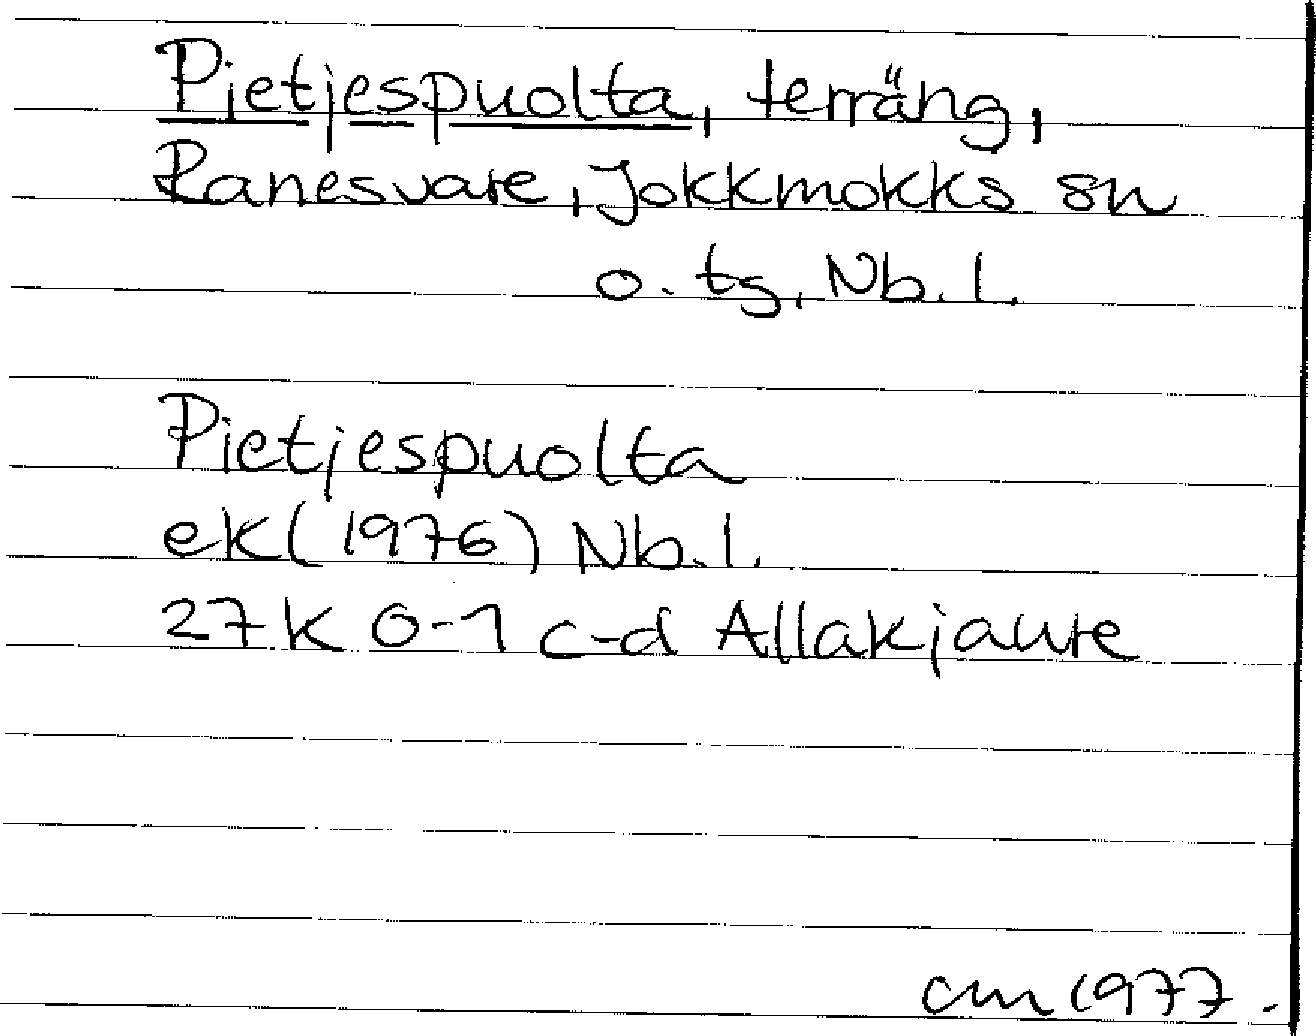 Pietjespuolta, terräng,
Ranesvare, Jokkmokks sn
o. tg, Nb. l.
Pietjespuolta
ek (1976) Nb. l.
27 K 0-1 c-d Allakjaure
cm 1977.